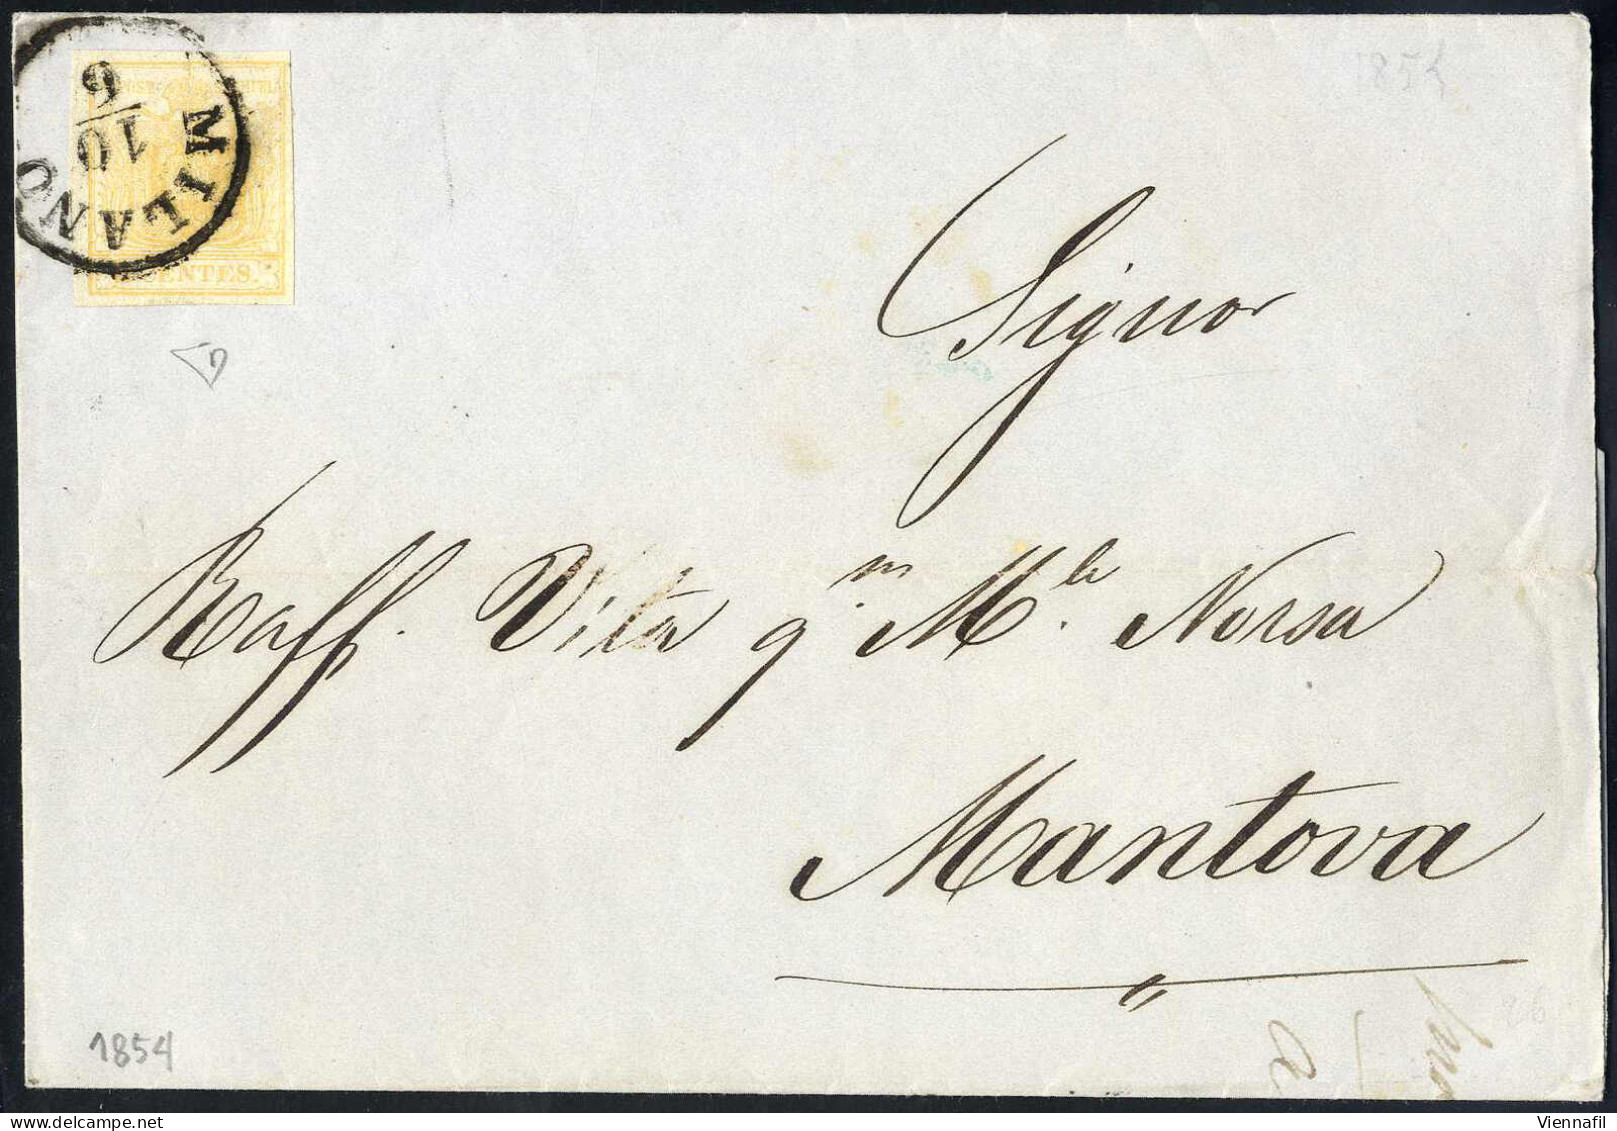 6
10
MILANO
CENTES.
1854
Signor
Raff. Vita q.m M.le Norsa
Mantova
1854
26
Viennafil